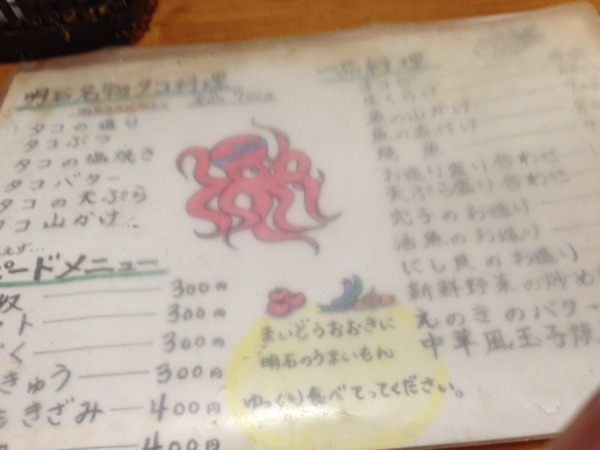 明石名物タコ料理
タコの造り
タコぶつ
タコの塩焼き
タコバター
タコの天ぷら
タコ山かけ
ピードメニュー
300円
ト 300円
く 300円
きゅう 300円
きざみ 400円
400円
一品料理
生くらげ
魚の山かけ
焼魚
お造り盛り合わせ
天ぷら盛り合わせ
穴子のお造り
活魚のお造り
にし貝のお造り
新鮮野菜の炒め
えのきのバター
中華風玉子
まいどうおおきに
明石のうまいもん
ゆっくり食べてってください。